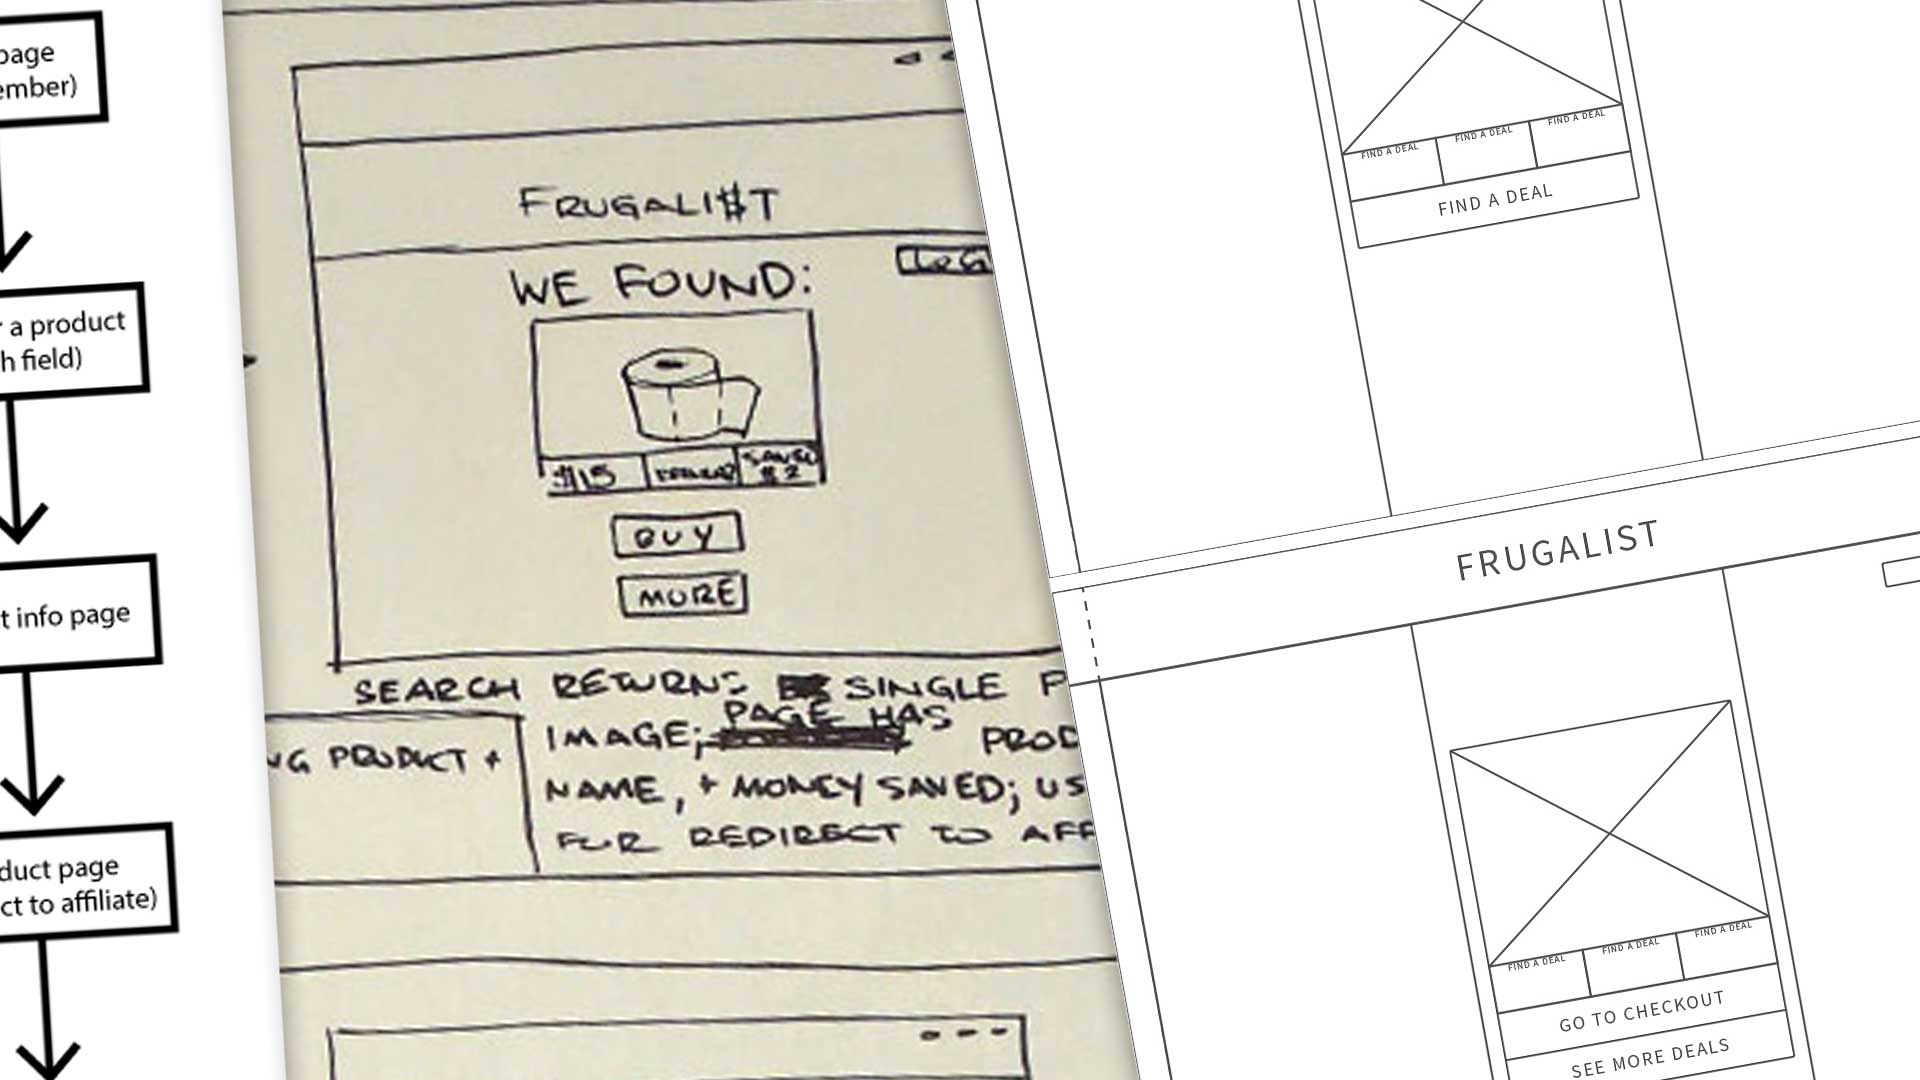 page
ember)
r a product
h field)
t info page
duct page
ct to affiliate)
FRUGALI$T
WE FOUND:
$15
SAVED
$2
BUY
MORE
SEARCH RETURNS SINGLE P
IMAGE; PAGE HAS PROD
NAME, + MONEY SAVED; US
FOR REDIRECT TO AFF
NG PRODUCT +
FIND A DEAL
FIND A DEAL
FIND A DEAL
FIND A DEAL
FRUGALIST
FIND A DEAL
FIND A DEAL
FIND A DEAL
GO TO CHECKOUT
SEE MORE DEALS